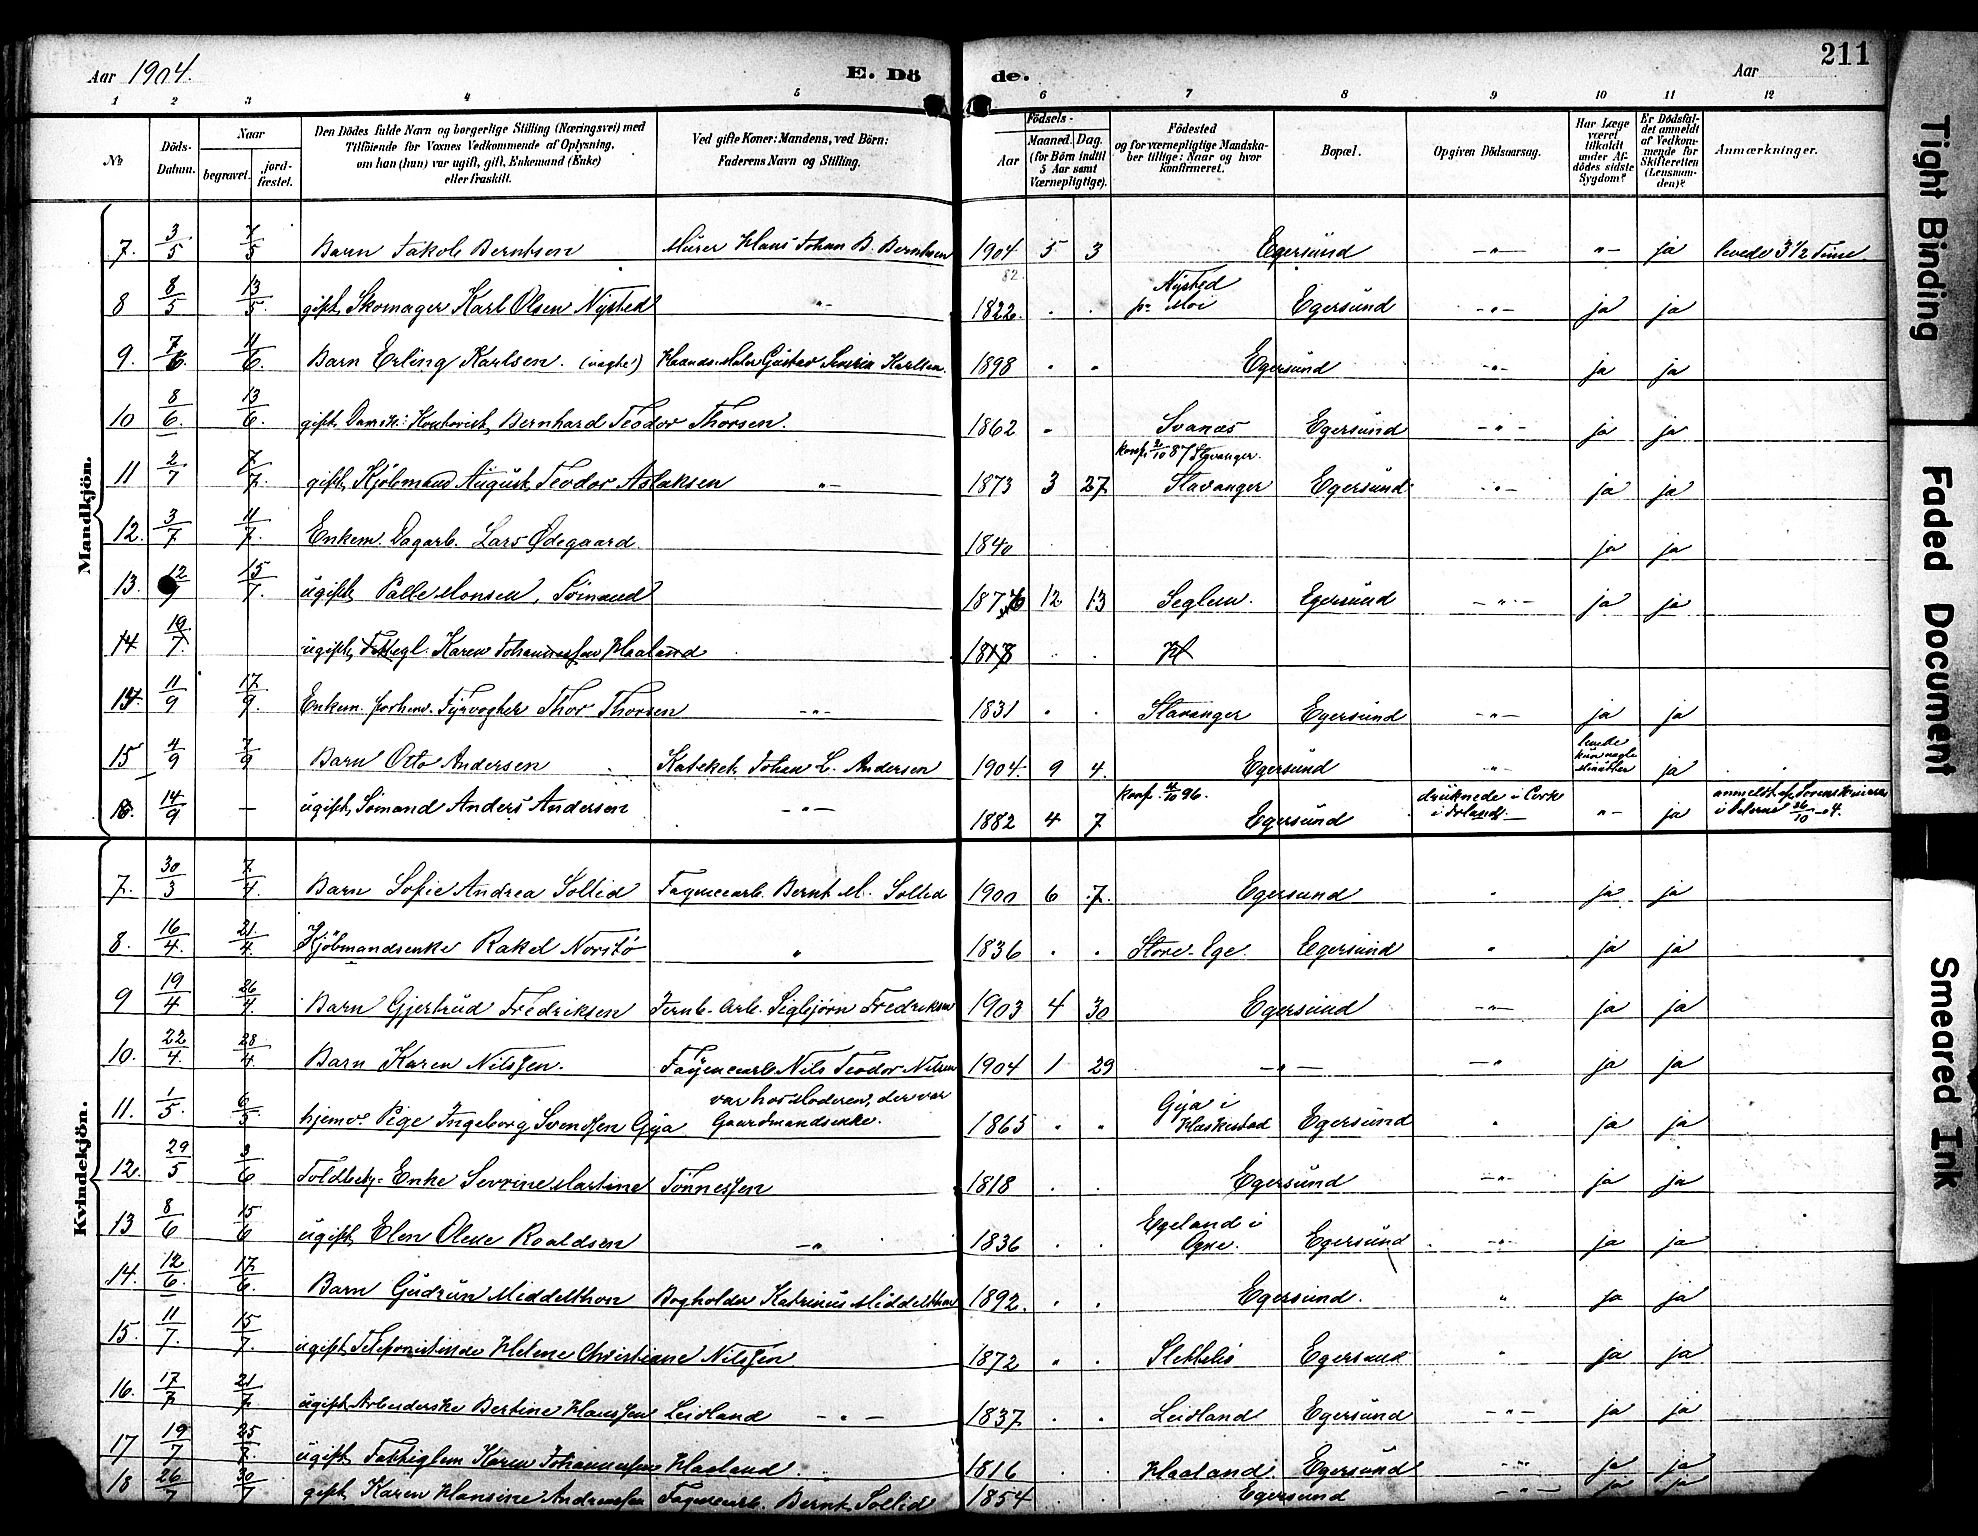 Aar 1904. E. Dö de. Aar 211
1 2 3 4 5 6 7 8 9 10 11 12
No
Döds-Datum.
Naar begravet. jordfæstet.
Den Dödes fulde Navn og borgerlige Stilling (Næringsvei) med Tilföiende for Voxnes Vedkommende af Oplysning, om han (hun) var ugift, gift, Enkemand (Enke) eller fraskilt.
Ved gifte Koner: Mandens, ved Börn: Faderens Navn og Stilling.
Födsels- Aar Maaned. Dag. (for Börn indtil 5 Aar samt Værnepligtige).
Födested og for værnepligtige Mandskaber tillige: Naar og hvor konfirmeret.
Bopæl.
Opgiven Dödsaarsag.
Har Læge været tilkaldt under Afdödes sidste Sygdom?
Er Dödsfaldet anmeldt af Vedkommende for Skifteretten (Lensmanden)?
Anmærkninger.
Mandkjön.
7. 3/5 7/5 Barn Jakob Berntsen Murer Hans Johan B. Berntsen 1904 5 3 Egersund -"- "- ja levede 3 1/2 Time.
8 8/5 13/5. gift Skomager Karl Olsen Nysted "- 1822. 82. . . Nysted pr Moi Egersund -"- ja ja
9. 7/6. 11/6. Barn Erling Karlsen. (uægte) Haandv. Maler Gustav Severin Karlsen. 1898 " " Egersund -"- ja ja
10 8/6. 13/6. gift Damsk: Kontorist Bernhard Teodor Thorsen. 1862 " Svanæs Egersund -"- ja ja
11 2/7 7/7. gift Kjöbmand August Teodor Aslaksen "- 1873 3 27 konf. 2/10 87 Stavanger. Stavanger Egersund -"- ja ja
12. 3/7 11/7. Enkem. Dagarb. Lars Ødegaard. 1840 . . ja ja
13. 12/7 15/7. ugift Palle Monsen, Sömand 1876 12 13 Seglem. Egersund -"- ja ja
14 19/7. ugift, Fattegl. Karen Johannessen Haaland 1818 . . H
14. 11/9 17/9. Enkem. forhenv. Fyrvogter Thor Thorsen -"- 1831 . . Stavanger Egersund -"- ja ja
15 4/9 7/9 Barn Otto Andersen Kateket Johan L. Andersen 1904. 9 4. Egersund " levede kun nogle Minutter ja .
16. 14/9 - ugift, Sömand Anders Andersen -"- 1882 4 7 konf. 4/10 96. Egersund druknede i Cork i Irland. "- ja anmeldt af Sorenskriveren i Dalerne 26/10 -04.
Kvindekjön.
7. 30/3 7/4. Barn Sofie Andrea Sollid Fayencearb. Bernt M. Sollid 1900 6 7. Egersund " ja ja
8. 16/4. 21/4. Kjöbmandsenke Rakel Norstö " 1836 . . Store-Ege. Egersund " ja ja
9 19/4 26/4. Barn Gjertrud Fredriksen Jernb. Arb. Sigbjörn Fredriksen 1903 4 30 Egersund -"- ja ja
10. 22/4. 28/4. Barn Karen Nilssen. Fayencearb Nils Teodor Nilsen 1904 1 29 -"- -"- ja ja
11. 1/5. 6/5 hjemv. Pige Ingeborg Svendsen Gya var hos Moderen, der var Gaardmandsenke. 1865 . " Gya i Heskestad Egersund " ja ja
12. 29/5 3/6 Toldbetj. Enke Sevrine Martine Tönnessen 1818 . . Egersund -"- ja ja
13 8/6 15/6 ugift, Elen Olene Roaldsen -"- 1836 . . Egeland i Ogne. Egersund -"- ja ja
14. 12/6. 17/6. Barn Gudrun Middelthon Bogholder Katrinus Middelthon 1892. . . Egersund. " ja ja
15. 11/7. 15/7. ugift Telefonistinde Helene Christiane Nilssen 1872 " . Slettebö Egersund " ja ja
16. 17/7 21/7 ugift Arbeiderske Bertine Hanssen Leidland -"- 1837. . . Leidland Egersund -"- ja ja
17 19/7 25/7. ugift, Fattiglem Karen Johannessen Haaland. 1816 . . Haaland Egersund -"- ja ja
18 26/7 30/7 gift Karen Hansine Andreassen Fayencearb. Bernt Sollid 1854 . . Egersund -"- ja ja
Tight Binding
Faded Document
Smeared Ink